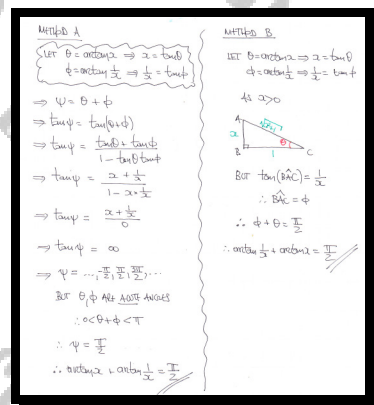 METHOD A
LET θ = arctan x ⇒ x = tanθ
φ = arctan 1/x ⇒ 1/x = tanφ
⇒ ψ = θ + φ
⇒ tanψ = tan(θ+φ)
⇒ tanψ = (tanθ + tanφ)/(1 - tanθ tanφ)
⇒ tanψ = (x + 1/x)/(1 - x × 1/x)
⇒ tanψ = (x + 1/x)/0
⇒ tanψ = ∞
⇒ ψ = ..., -π/2, π/2, 3π/2, ...
BUT θ, φ ARE ACUTE ANGLES
∴ 0 < θ + φ < π
∴ ψ = π/2
∴ arctan x + arctan 1/x = π/2
METHOD B
LET θ = arctan x ⇒ x = tanθ
φ = arctan 1/x ⇒ 1/x = tanφ
AS x > 0
A
x
θ
B
1
C
BUT tan(BÂC) = 1/x
∴ BÂC = φ
∴ φ + θ = π/2
∴ arctan 1/x + arctan x = π/2